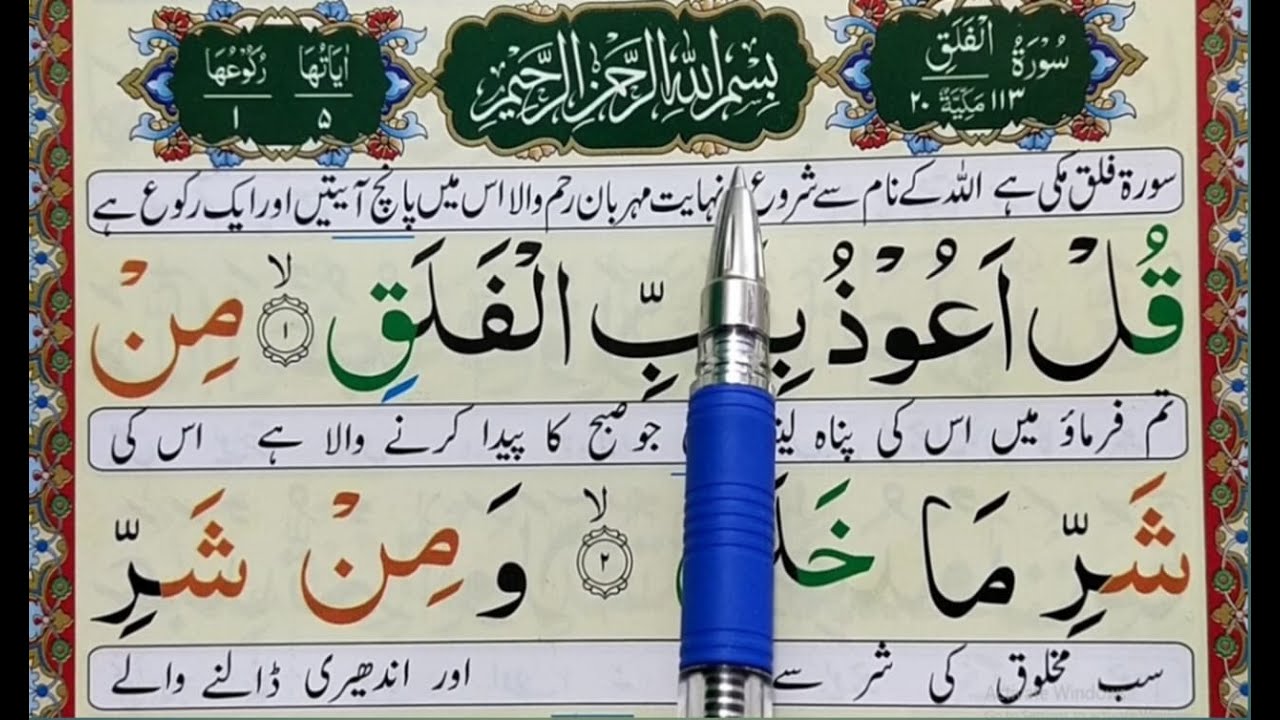 سُوْرَةُ الْفَلَقِ
١١٣ مَكِّيَّةٌ ٢٠
بِسْمِ اللّٰهِ الرَّحْمٰنِ الرَّحِيْمِ
اٰيَاتُهَا ٥
رُكُوْعُهَا ١
سورۃ فلق مکی ہے اللہ کے نام سے شروع نہایت مہربان رحم والا اس میں پانچ آیتیں اور ایک رکوع ہے
قُلْ اَعُوْذُ بِرَبِّ الْفَلَقِ ۙ ١ مِنْ
تم فرماؤ میں اس کی پناہ جو صبح کا پیدا کرنے والا ہے اس کی
شَرِّ مَا ۙ ٢ وَمِنْ شَرِّ
سب مخلوق کی شر سے اور اندھیری ڈالنے والے
Activate Windows